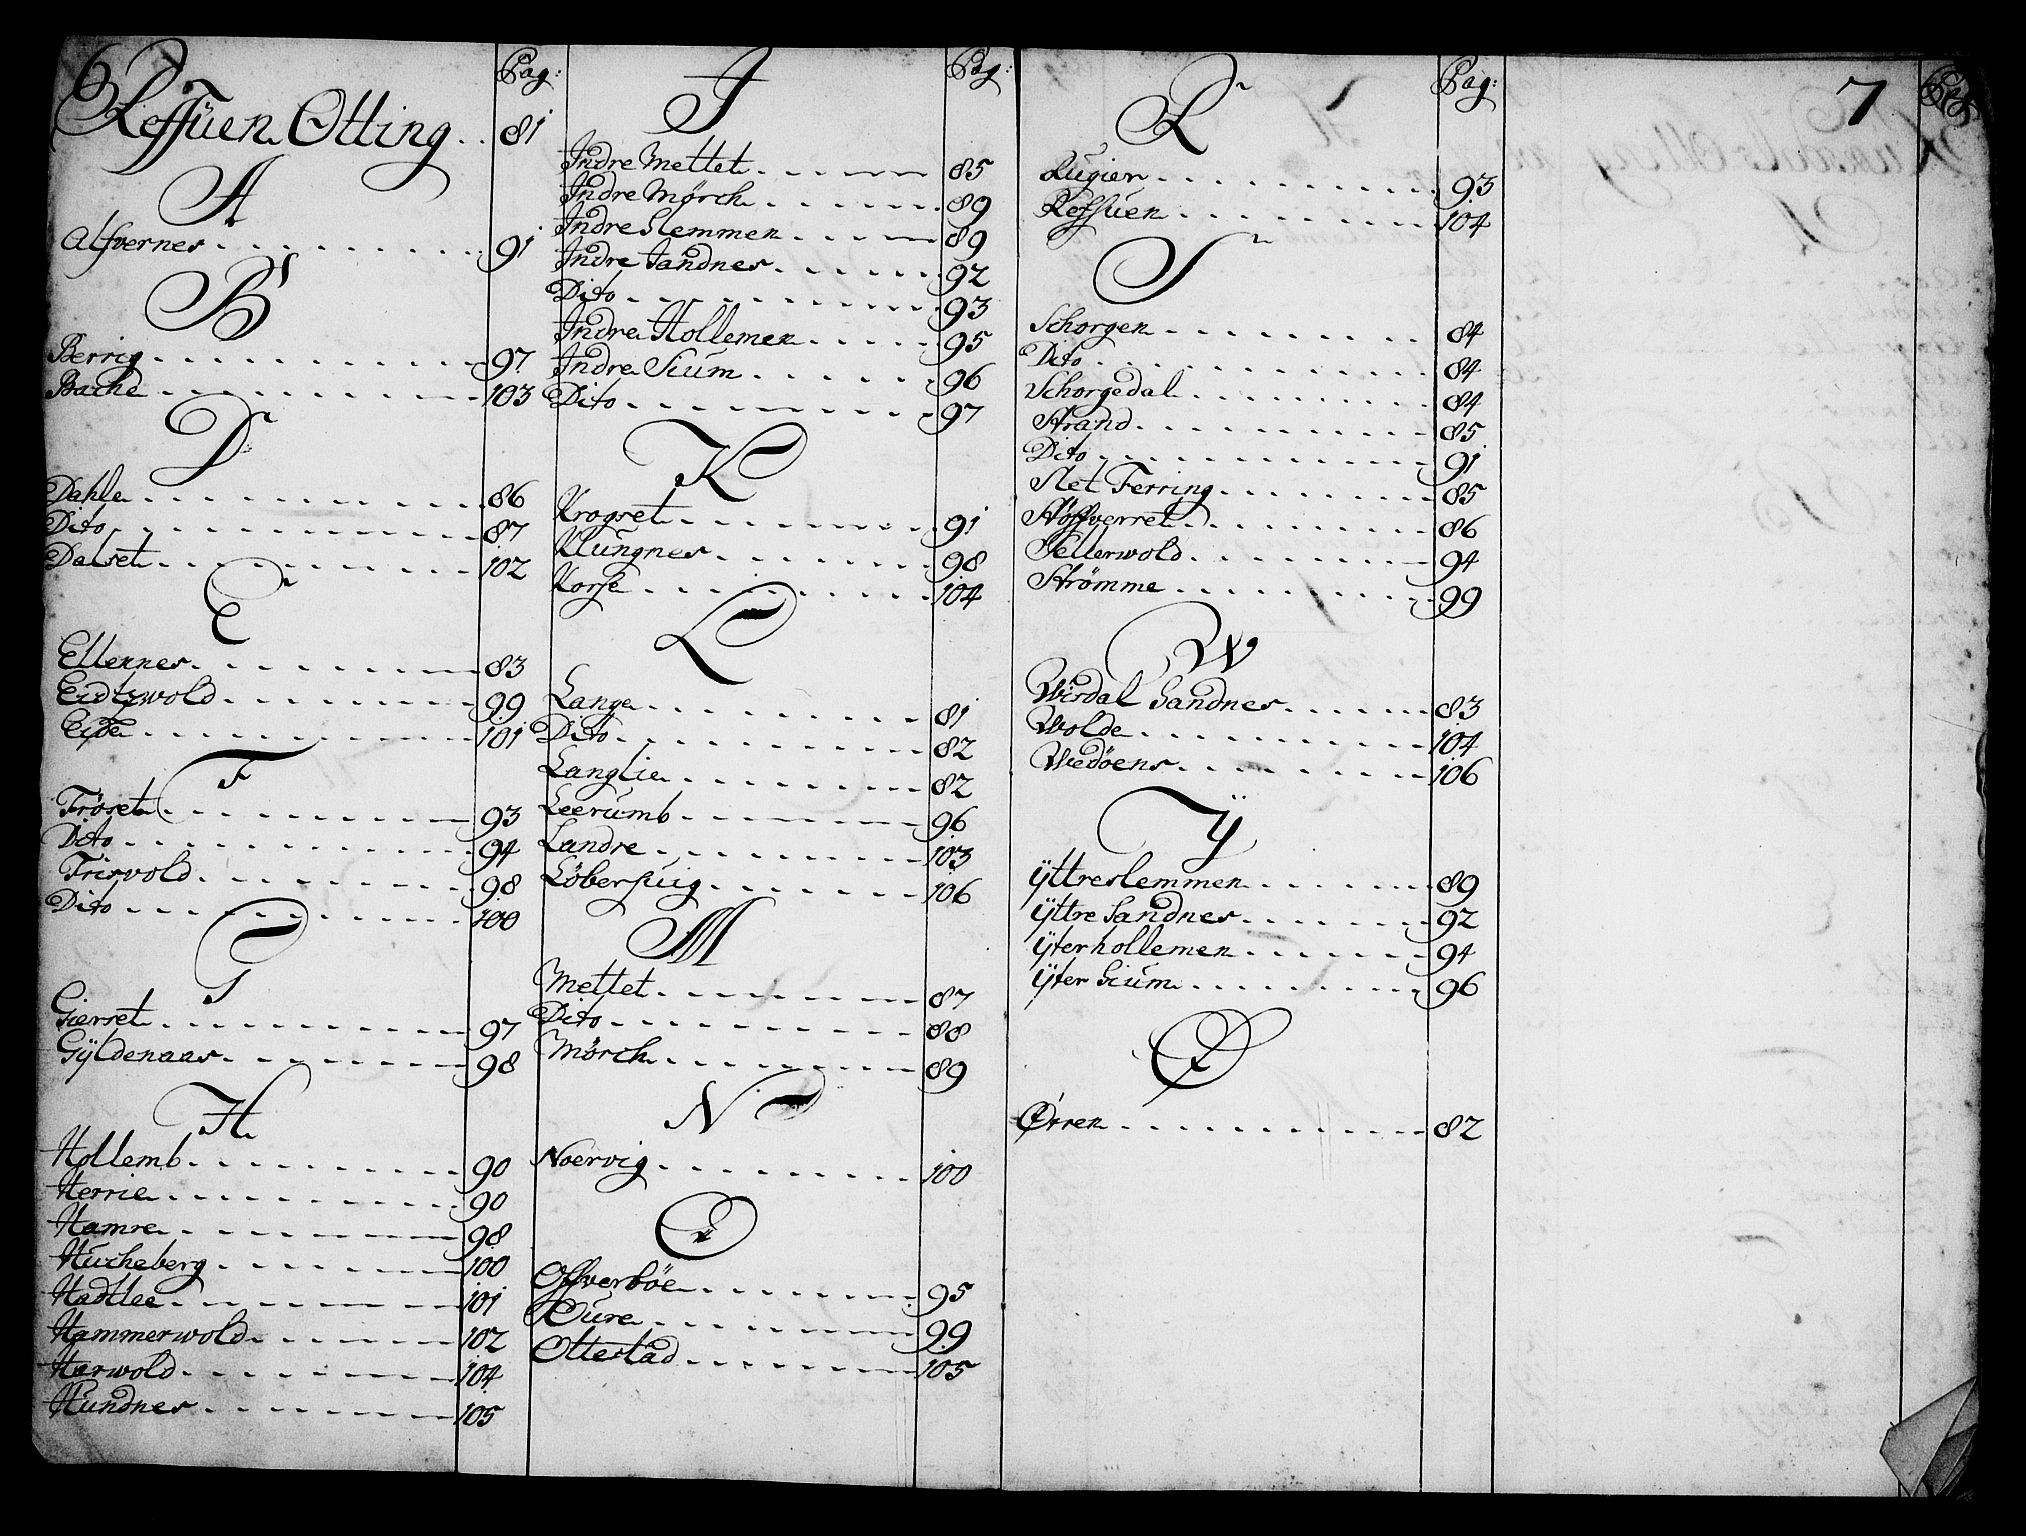 6
Pag:
Reffüen Otting . . 81
A
Alfvernes . . . . 91
B
Berrig . . . . 97
Bache . . . . 103
D
Dahle . . . . 86
Dito . . . . 87
Dalset . . . . 102
E
Ellennes . . . . 83
Eidtzwold . . . . 99
Eide . . . . 101
F
Frøset . . . . 93
Dito . . . . 94
Frisvold . . . . 98
Dito . . . . 100
G
Gierset . . . . 97
Gÿldenaas . . . . 98
H
Hollemb . . . . 90
Herrie . . . . 90
Hamre . . . . 98
Hucheberg . . . . 100
Hadtlee . . . . 101
Hammerwold . . . . 102
Harwold . . . . 104
Hundnes . . . . 105
Pag:
I
Indre Mettet . . . . 85
Indre Mørch . . . . 89
Indre Slemmen . . . . 89
Indre Sandnes . . . . 92
Dito . . . . 93
Indre Hollemen . . . . 95
Indre Sium . . . . 96
Dito . . . . 97
K
Krogset . . . . 91
Klüngnes . . . . 98
Korse . . . . 104
L
Lange . . . . 81
Dito . . . . 82
Langlie . . . . 82
Leerumb . . . . 96
Landre . . . . 103
Løbersuig . . . . 106
M
Mettet . . . . 87
Dito . . . . 88
Mørch . . . . 89
N
Noervig . . . . 100
O
Offverbøe . . . . 95
Oure . . . . 99
Ottestad . . . . 105
Pag:
R
Rugien . . . . 93
Reffuen . . . . 104
S
Schorgen . . . . 84
Dito . . . . 84
Schorgedal . . . . 84
Strand . . . . 85
Dito . . . . 91
Slet Ferring . . . . 85
Støffverret . . . . 86
Sellerwold . . . . 94
Strømme . . . . 99
W
Wisdal Sandnes . . . . 83
Wolde . . . . 104
Wedøens . . . . 106
Ÿ
Ÿttreslemmen . . . . 89
Ÿttre Sandnes . . . . 92
Ÿterhollemen . . . . 94
Ÿter Sium . . . . 96
Ø
Ørren . . . . 82
7
Pag